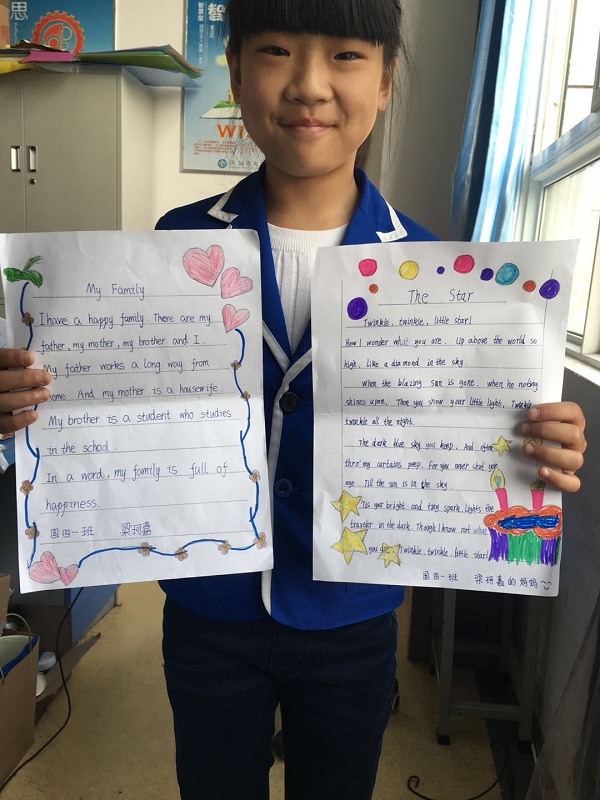 思
智
WI
My Family
I have a happy family. There are my
father, my mother, my brother and I.
My father works a long way from
home. And my mother is a housewife
My brother is a student who studies
in the school.
In a word, my family is full of
happiness.
国四一班 梁珂嘉
The Star
Twinkle, twinkle, little star!
How I wonder what you are. Up above the world so
high, Like a diamond in the sky
When the blazing sun is gone. when he nothing
shines upon, Then you show your little lights, Twinkle
twinkle all the night.
The dark blue sky you keep, And often
thro'my curtains peep. For you never shut your
eye. Till the sun is in the sky
'Tis your bright and tiny spark. Lights the
traveler in the dark. Though I know not what
you are, Twinkle, twinkle, little star!
国四一班 梁珂嘉的妈妈